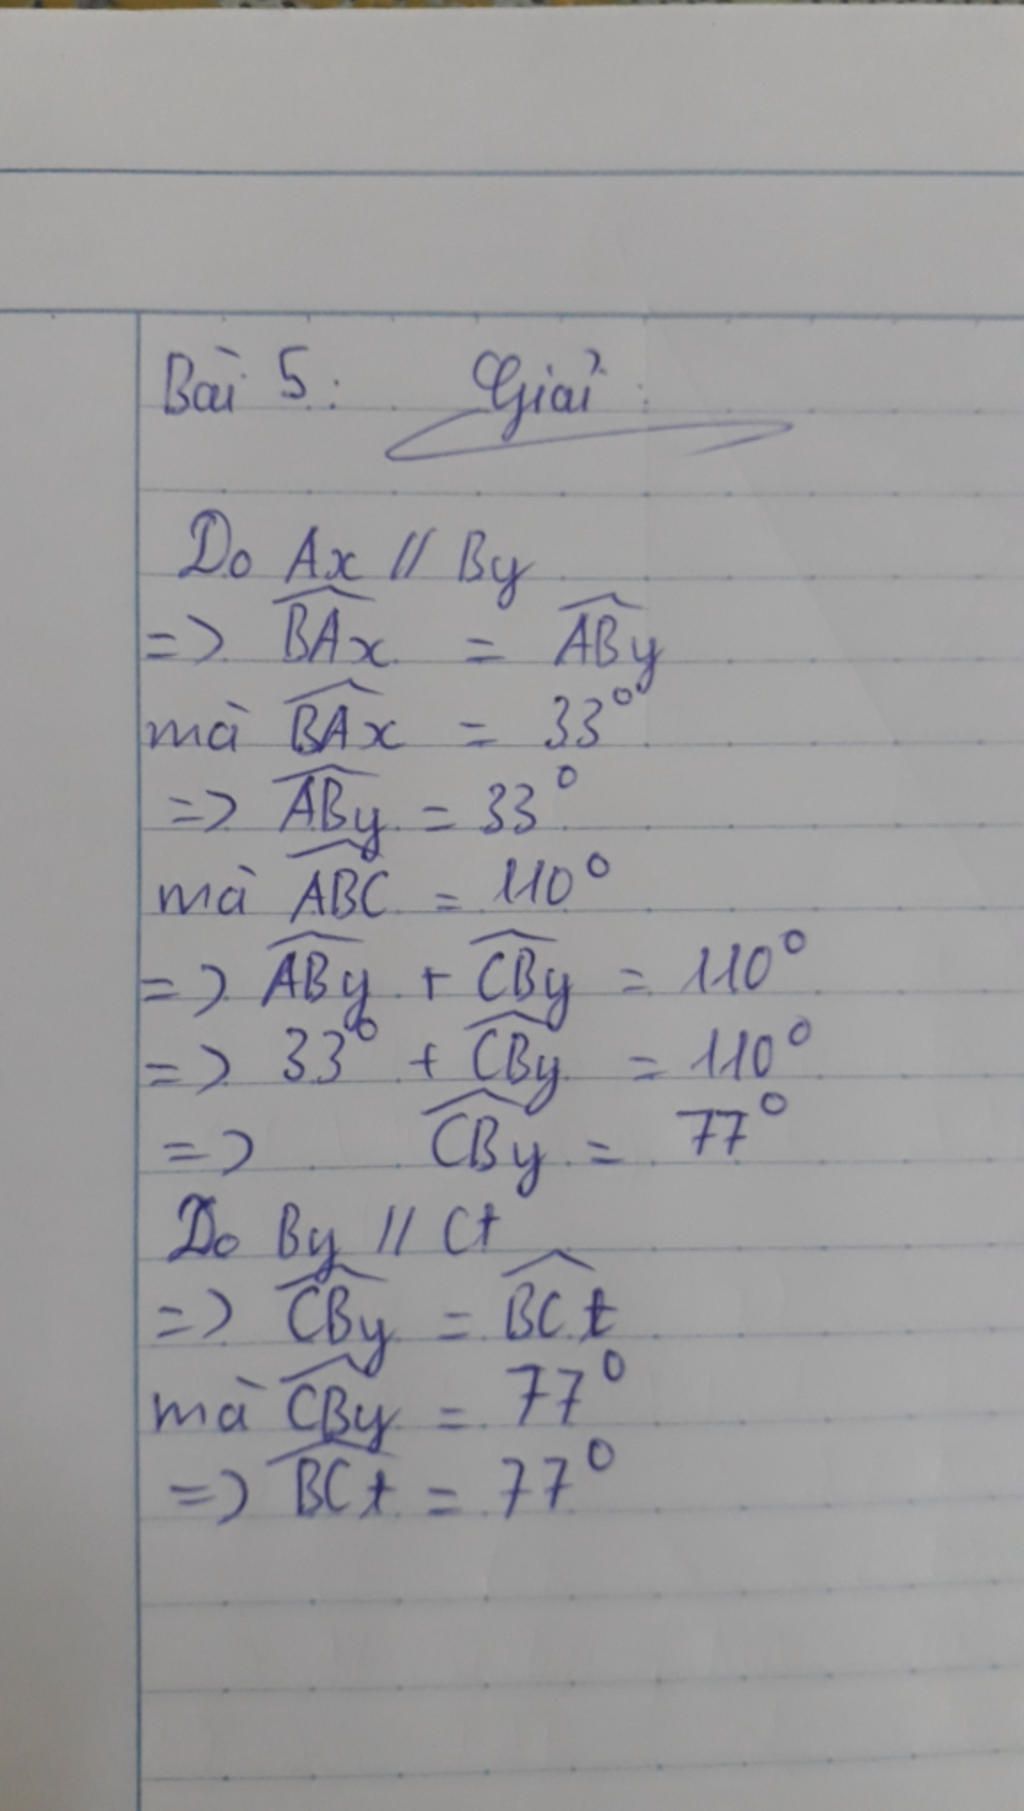 Bài 5: Giải:
Do Ax // By
=> BAx = ABy
mà BAx = 33°
=> ABy = 33°
mà ABC = 110°
=> ABy + CBy = 110°
=> 33° + CBy = 110°
=> CBy = 77°
Do By // Ct
=> CBy = BCt
mà CBy = 77°
=> BCt = 77°